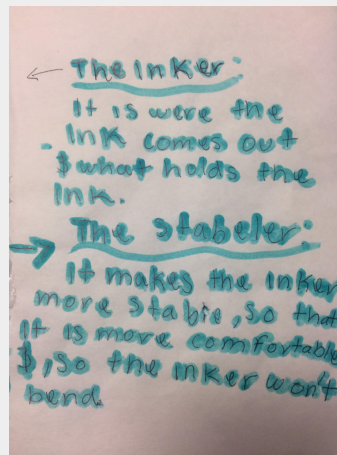 The Inker:
It is were the
Ink comes out
$ what holds the
Ink.
The stabeler:
It makes the inker
more stable, so that
it is more comfortable
$, so the inker won't
bend.